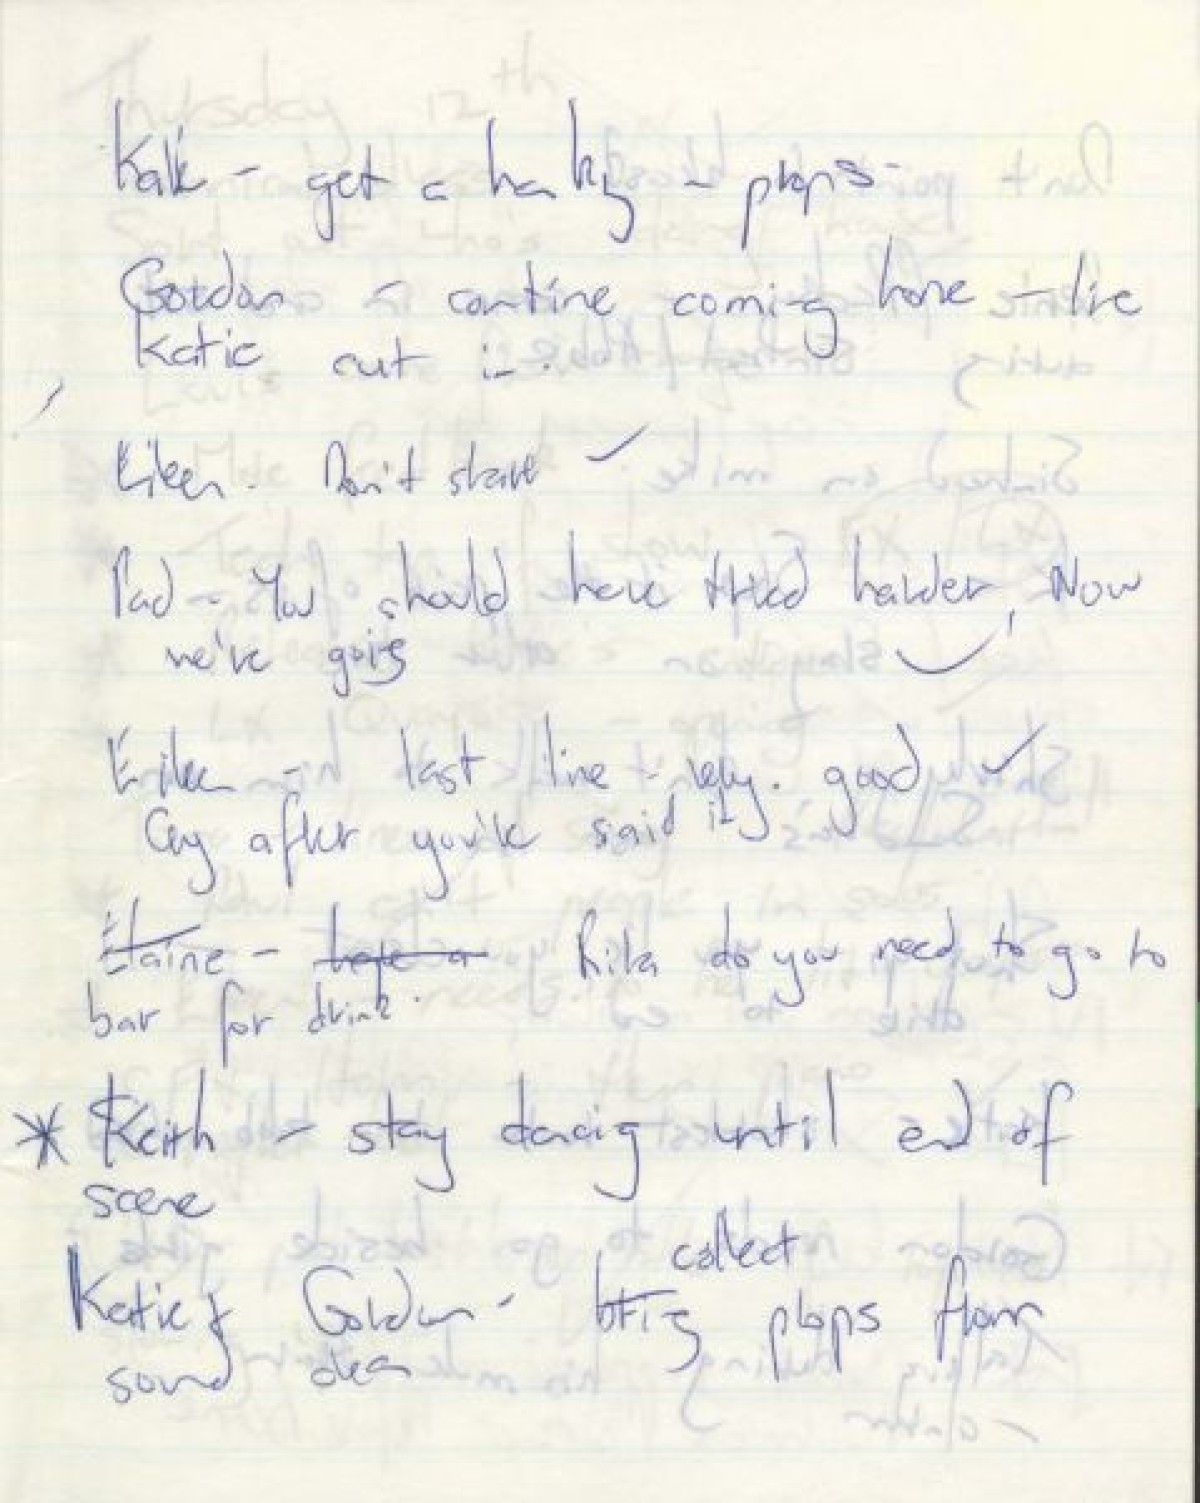 Katie - get a hanky - props -
Gordon - continue coming home - live
Katie cut in.
Eileen - Don't stare ✓
Pad - You should have tried harder, Now
we're going ✓
Eileen - last line - very. good ✓
Cry after you've said it
Elaine - have a Rita do you need to go to
bar for drink.
* Keith - stay dancing until end of
scene
collect
Katie & Gordon - bring props from
sound desk